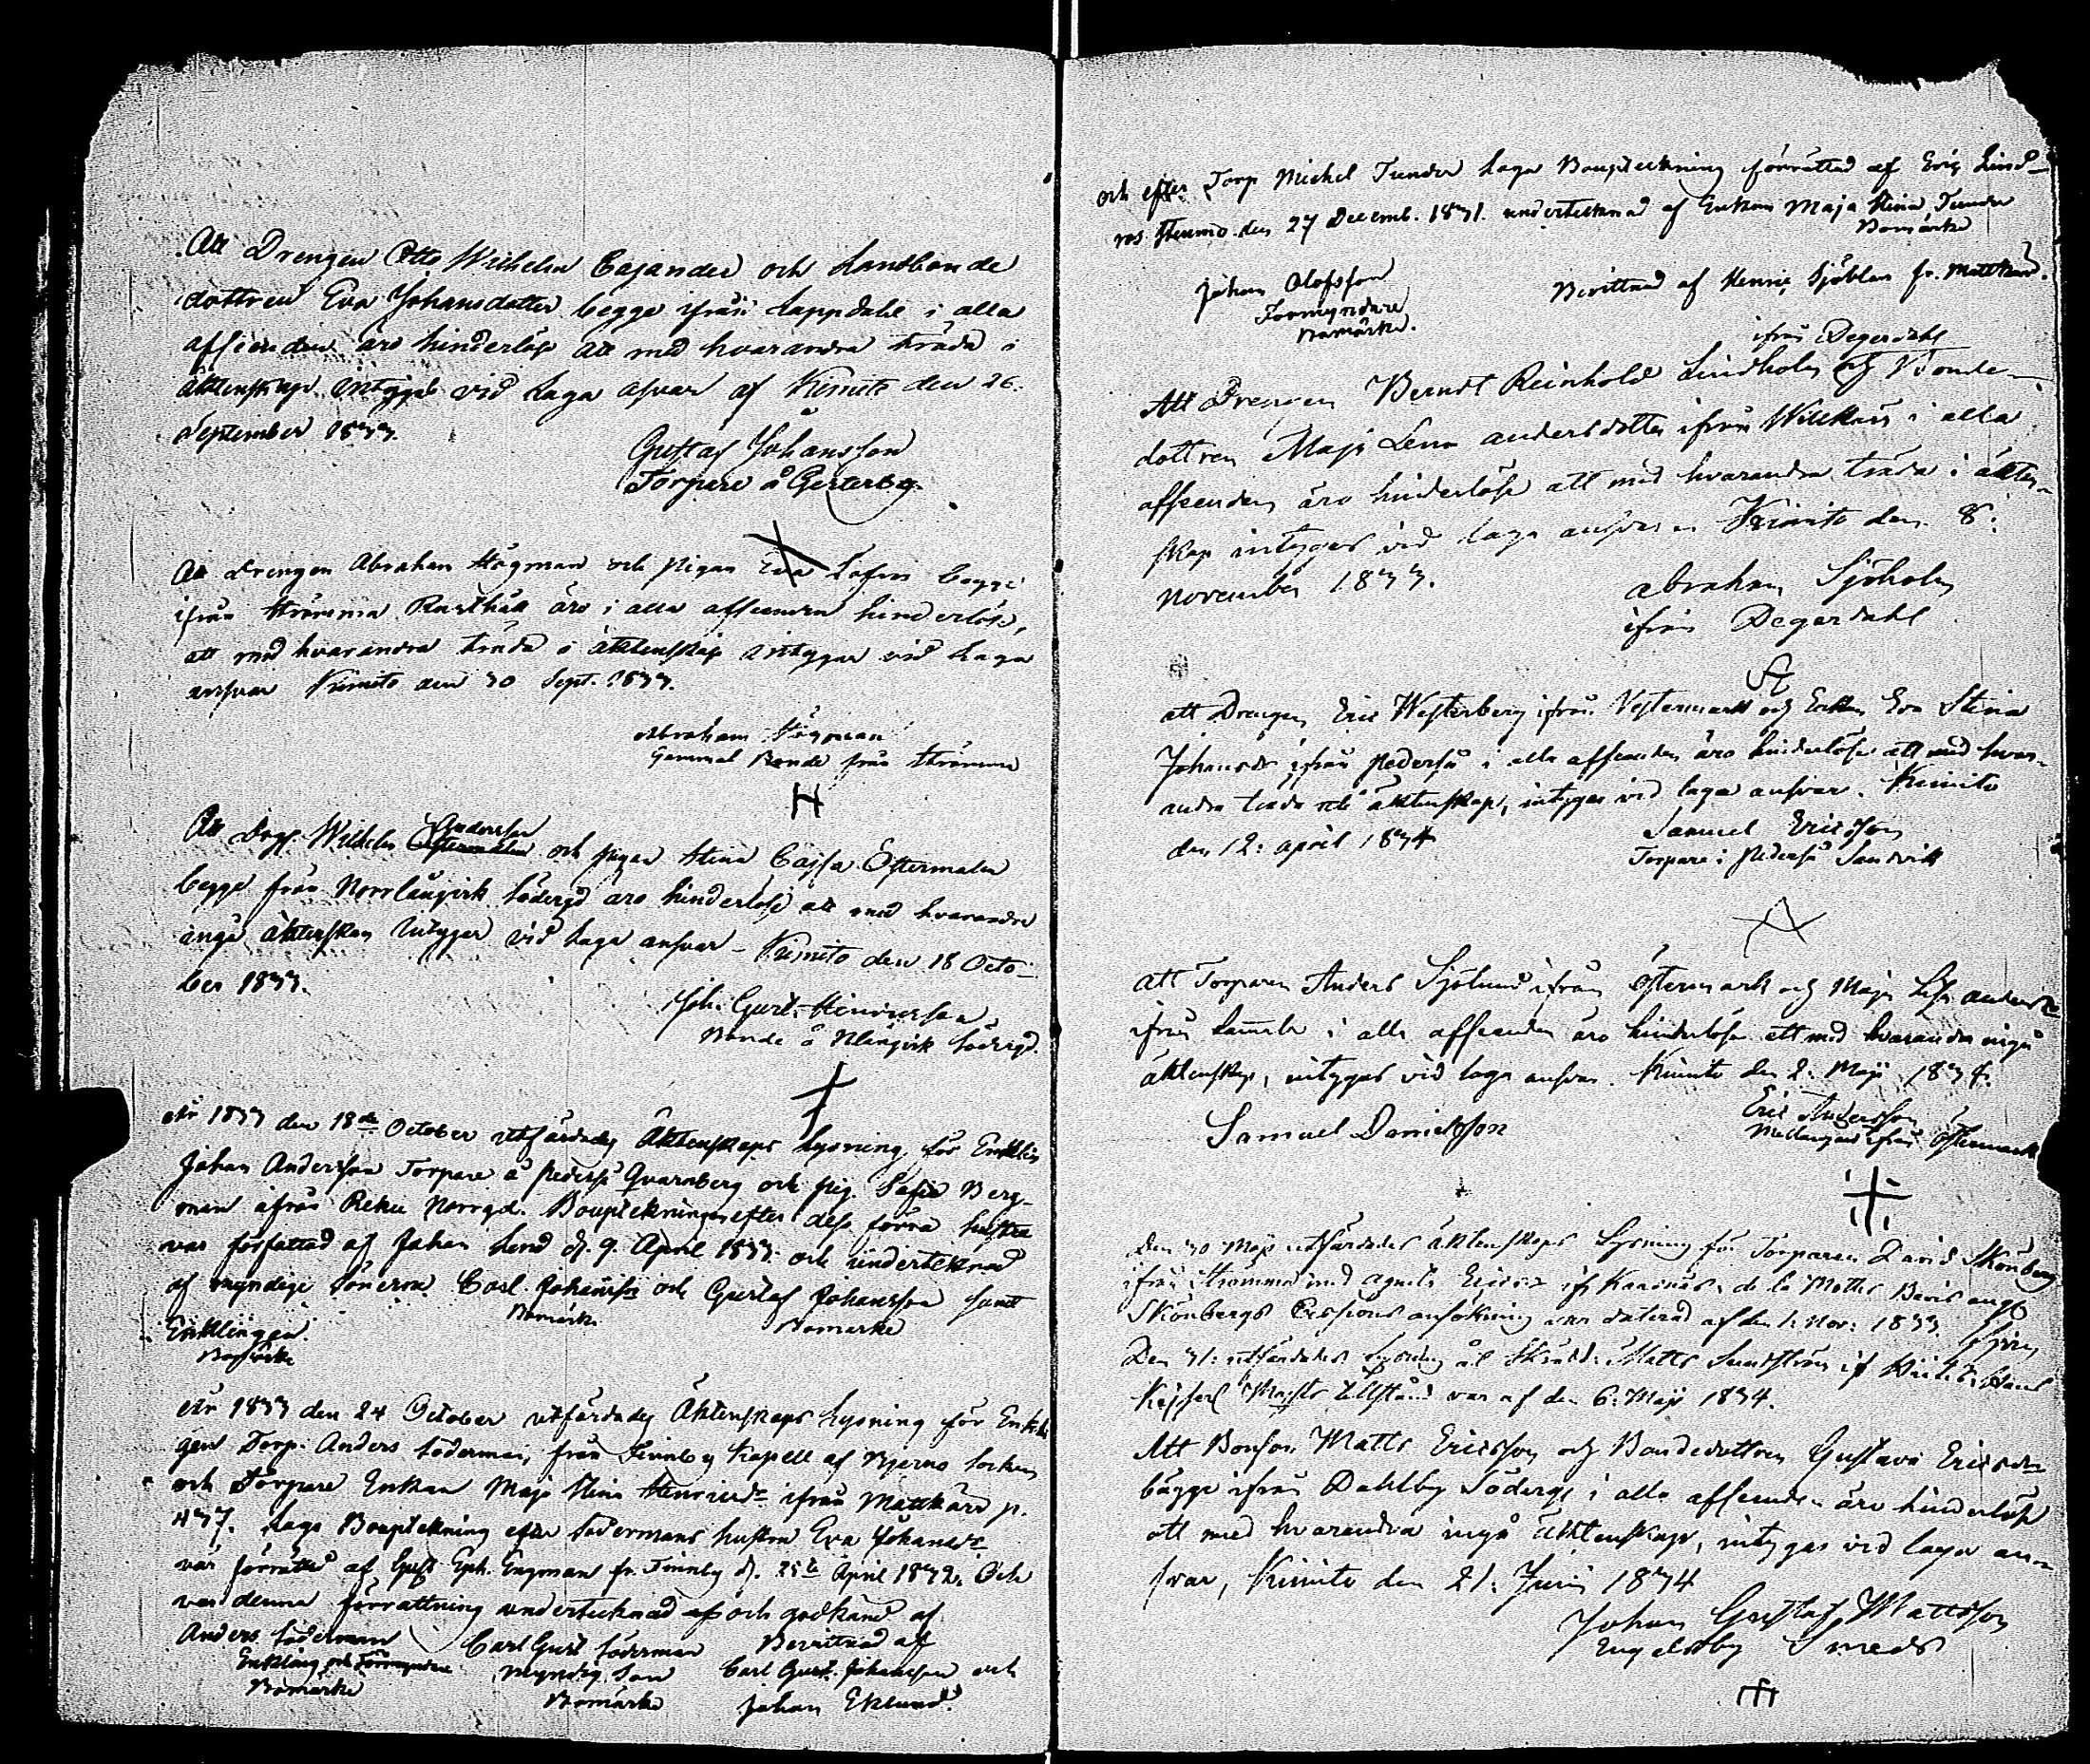 Att Drengen Otto Wilhelm Cajander och Landbonde
dottren Eva Johansdotter begge ifrån Lappdahl i alla
afseenden äro hinderlöse att med hvarandra träda i
Äktenskap intygas vid Laga answar af Kimito den 26.
September 1833.
Gustaf Johansson
Torpare å Gerterby.
Att Drengen Abraham Högman och pigan Eva Lofia begge
ifrån Strömma Rusthåll äro i alla afseenden hinderlöse,
att med hvarandra träda i äktenskap intygar vid Laga
answar Kimito den 30 Sept. 1833.
Abraham Högman
Gammal Bonde från Strömma
H
Att Drgn. Wilhelm Andersson och pigan Stina Cajsa Östermalm
begge från Norrlångvik Södergd äro hinderlöse att med hvarandra
ingå äktenskap intygar vid Laga answar - Kimito den 18 Octo-
ber 1833.
Joh. Gust. Henricsson
Bonde å Nlångvik Södergd.
År 1833 den 18de October utfärdades Äktenskaps Lysning för Enklin
Johan Andersson Torpare å Pederså Qvarnberg och pig. Safia Berg-
man ifrån Reku Norrgd. Bouptekningen efter dess förra hustru
var författad af Johan Lund d. 9. April 1833. och underteknad
af myndige Sönerna Carl Johansson och Gustaf Johansson samt
Bomärke Bomärke
Enklingen.
Bomärke
År 1833 den 24 October utfärdades Äktenskaps Lysning för Enklin
gen Torp. Anders Söderman, från Finnby Kapell af Bjerno Socken
och Torpare Enkan Maja Stina Henricsdr ifrån Mattkärr p.
437. Laga Bouptekning efter Södermans hustru Eva Johansdr
var förrättad af Gust. Eph. Engman fr. Finnby d. 25te April 1832. Och
var denna förrättning undertecknad och godkänd af
Anders Söderman Carl Gust Söderman Bevittnad af
Enkling och Förmyndare Myndig Son Carl Gust. Johansson och
Bomärke Bomärke Johan Eklund.
och efter Torp Michel Tunder Laga Bouptekning förrättad af Eric Lind-
ros Strömö den 27 Decemb. 1831. undertecknad af Enkan Maja Stina Tunder
Bomärke
Johan Olofsson Bevittnad af Henric Sjöblom fr. Mattkärr.
Förmyndare
Bomärke.
ifrån Degerdahl
Att Drengen Berndt Reinhold Lindholm och Bonde-
dottren Maja Lena Andersdotter ifrån Villkärr i alla
afseenden äro hinderlöse att med hvarandra träda i äkten-
skap intygas vid laga answar Kimito den 8:
november 1833.
Abraham Sjöholm
ifrån Degerdahl
att Drengen Eric Westerberg ifrån Vestermark och Enkan Eva Stina
Johansdr ifrån Pederså i alla afseenden äro hinderlöse att med hvar-
andra träda uti äktenskap, intygas vid laga answar. Kimito
den 12: april 1834
Samuel Ericsson
Torpare i Pederså Sandvik
Att Torparen Anders Sjölund ifrån Östermark och Maja Lisa Andersdr
ifrån i alla afseenden äro hinderlöse att med hvarandra ingå
äktenskap, intygas vid laga answar. Kimito den 2. Maji 1834.
Samuel Danielsson Eric Andersson
ifrån Östermark
Den 30 Maji utfärdades äktenskaps Lysning för Torparen David Skönberg
ifrån Strömma med Agneta Ericsdr if Kaasnäs. de la Mottes Bevis ang:
Skönbergs Cessions ansökning var daterad af den 1. Nov: 1833.
Den 31: utfärdades Lysning åt Skrädd: Matts Sundström if
Kejserl Maj:ts tillstånd var af den 6: Maji 1834.
Att Bonson Matts Ericsson och Bondedottren Gustava Ericsdr
bägge ifrån Dahlby Södergd i alla afseenden äro hinderlöse
att med hvarandra ingå äktenskap, intygas vid laga an-
svar, Kimito den 21. Juni 1834
Johan Gustaf Mattsson
Engelsby Smeds